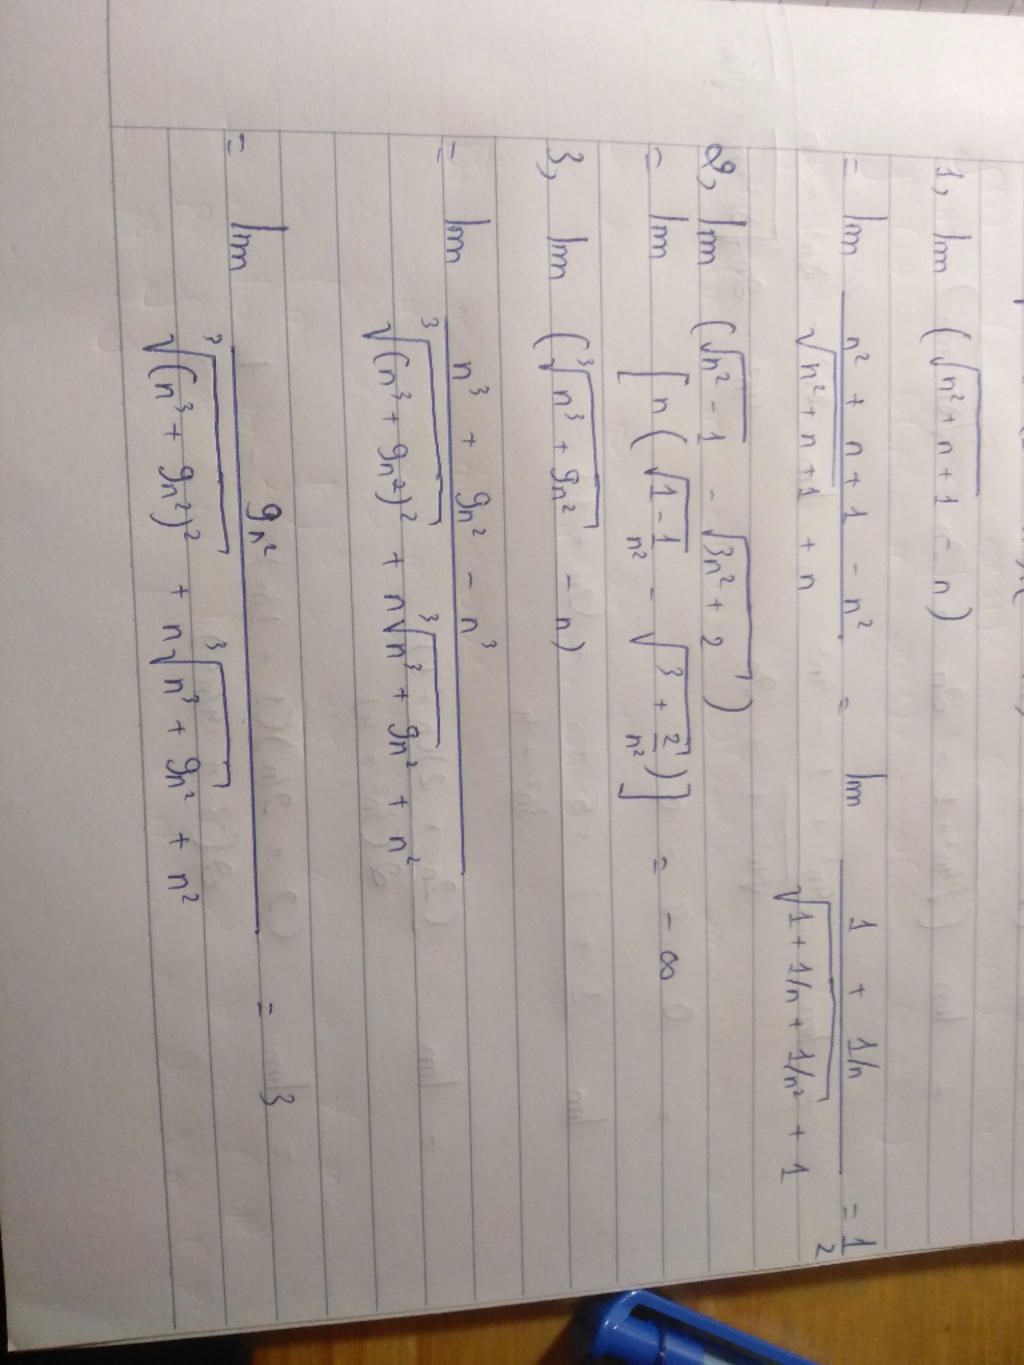 1, lim (√(n² + n + 1) - n)
= lim (n² + n + 1 - n²)/(√(n² + n + 1) + n) = lim (1 + 1/n)/(√(1 + 1/n + 1/n²) + 1) = 1/2
2, lim (√(n² - 1) - √(3n² + 2))
= lim [n(√(1 - 1/n²) - √(3 + 2/n²))] = -∞
3, lim (∛(n³ + 9n²) - n)
= lim (n³ + 9n² - n³)/(∛((n³ + 9n²)²) + n∛(n³ + 9n²) + n²)
= lim 9n²/(∛((n³ + 9n²)²) + n∛(n³ + 9n²) + n²) = 3